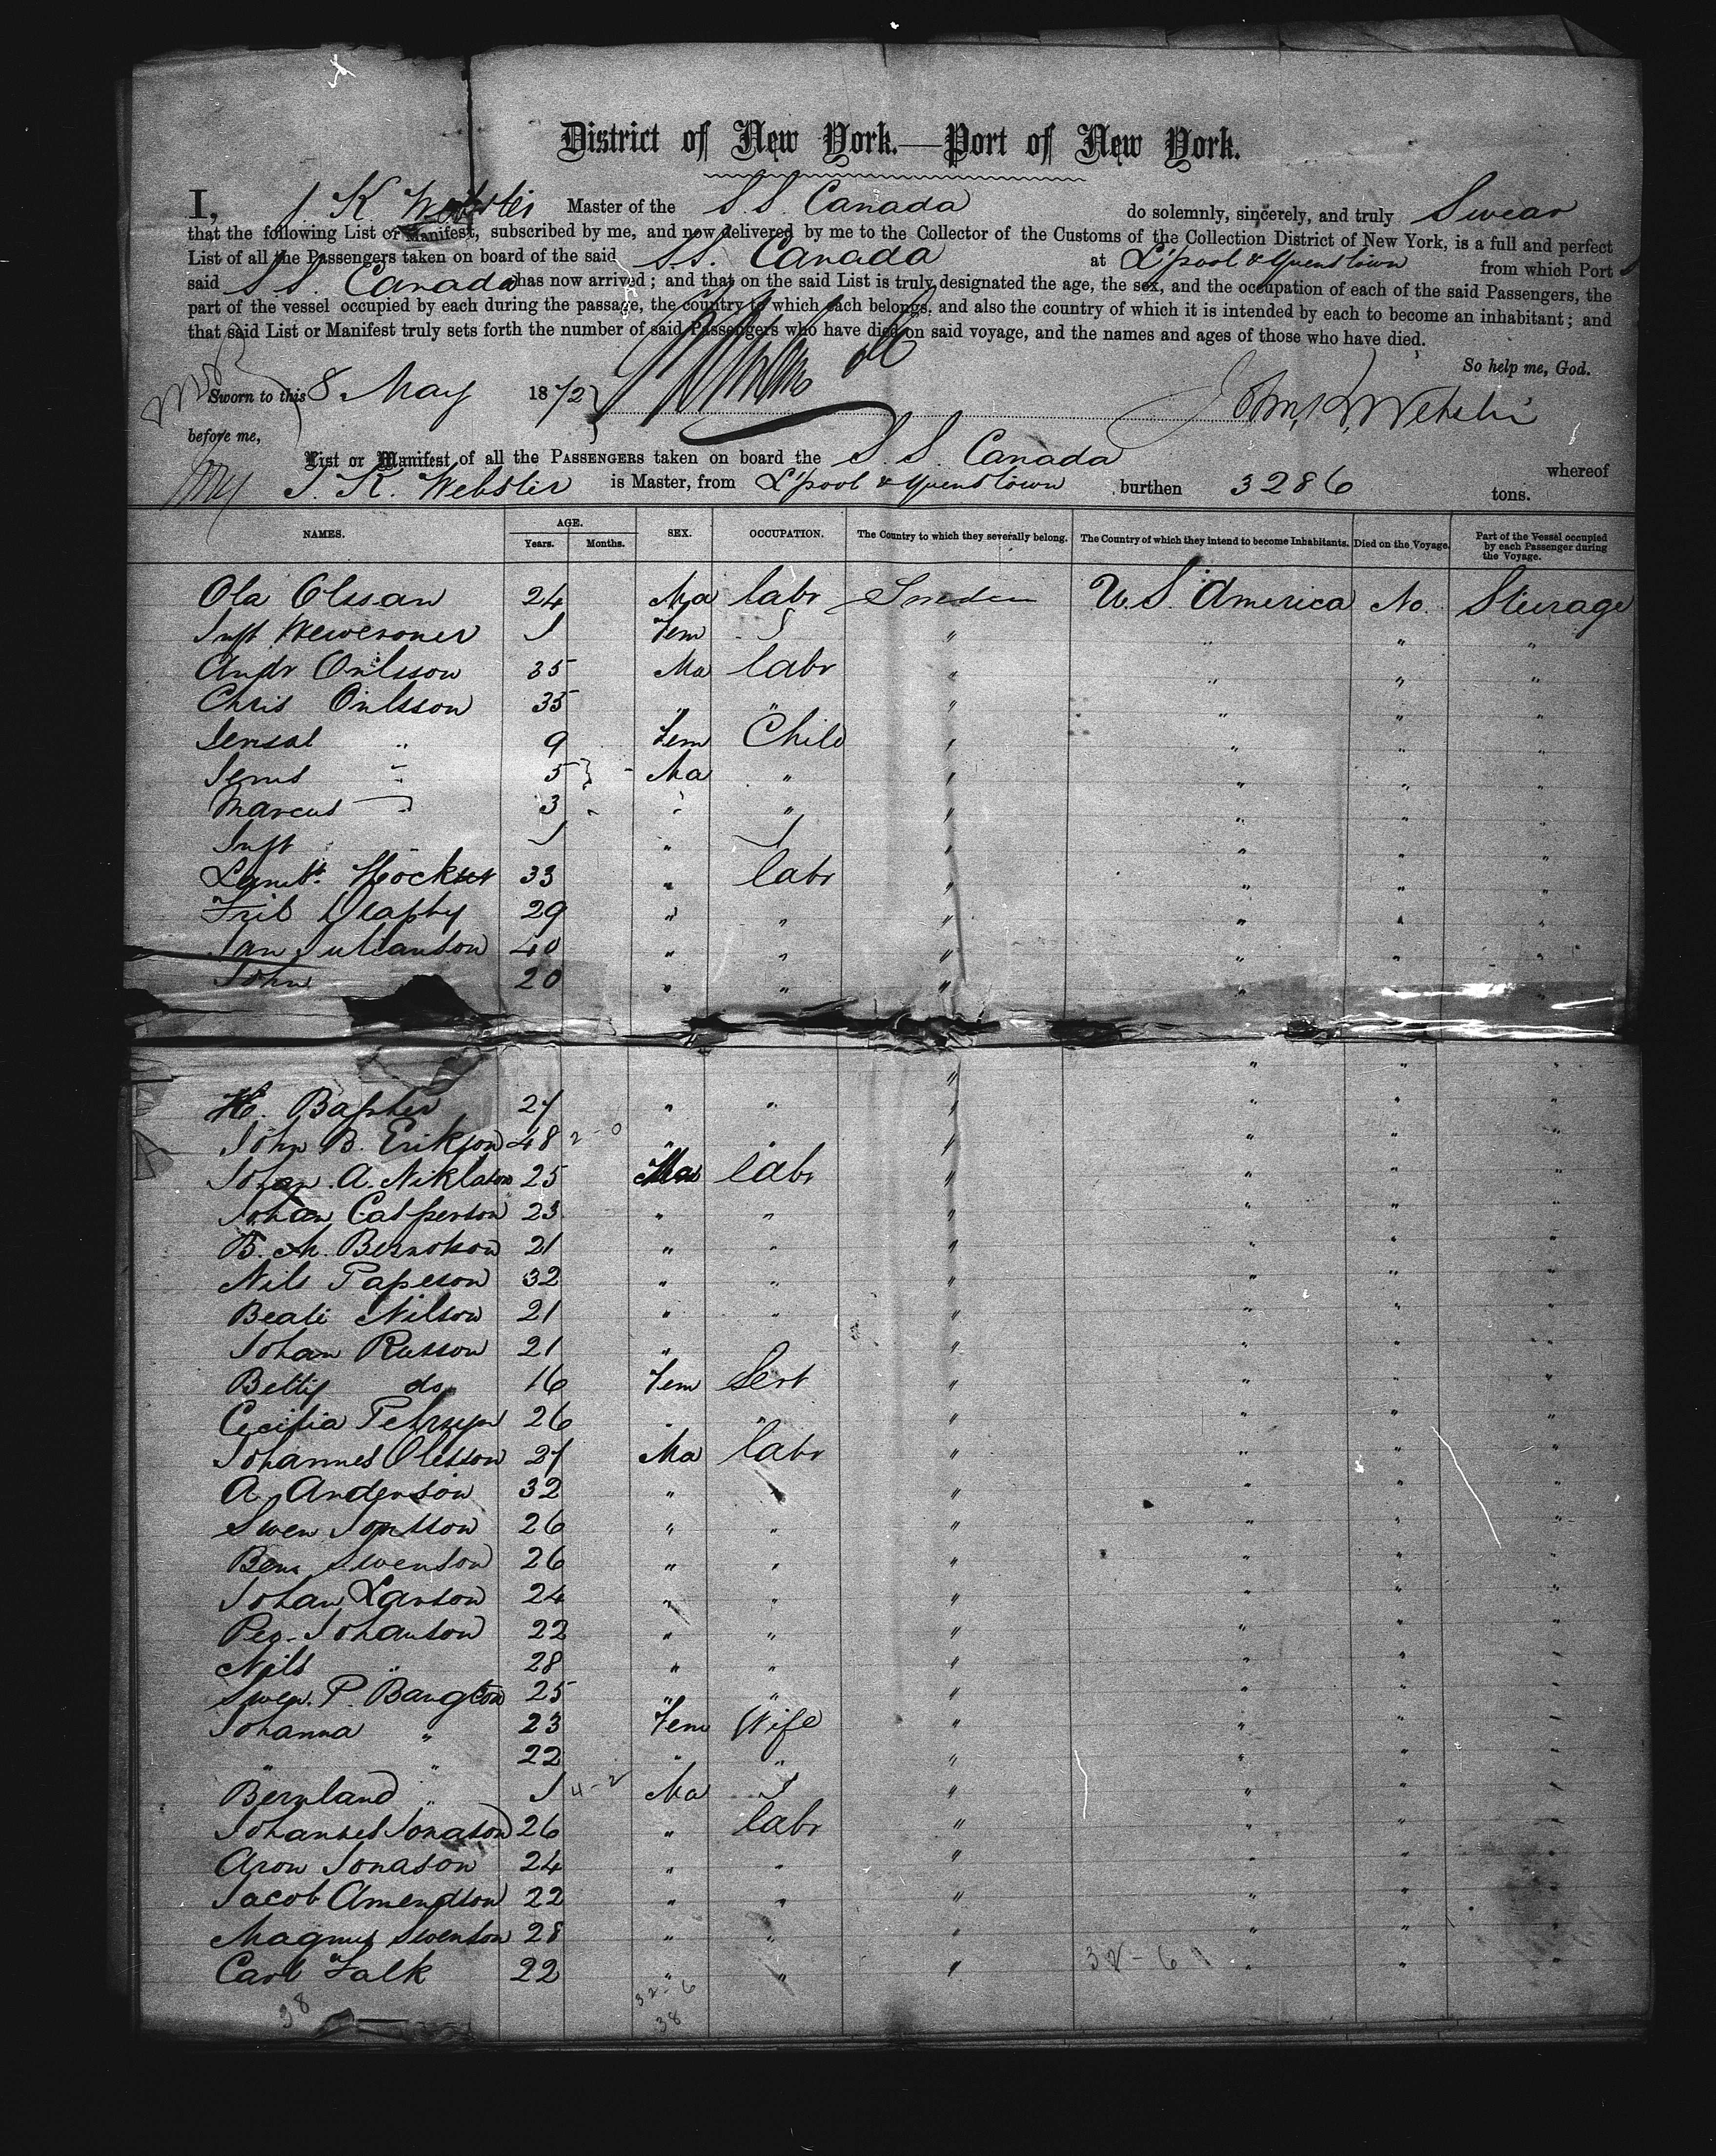 District of New York.—Port of New York.
I, J. K. Webster Master of the S.S. Canada do solemnly, sincerely, and truly Swear
that the following List or Manifest, subscribed by me, and now delivered by me to the Collector of the Customs of the Collection District of New York, is a full and perfect
List of all the Passengers taken on board of the said S.S. Canada at L'pool & Queenstown from which Port
said S.S. Canada has now arrived; and that on the said List is truly designated the age, the sex, and the occupation of each of the said Passengers, the
part of the vessel occupied by each during the passage, the country to which each belongs, and also the country of which it is intended by each to become an inhabitant; and
that said List or Manifest truly sets forth the number of said Passengers who have died on said voyage, and the names and ages of those who have died.
So help me, God.
Sworn to this 8 May 1872 John K. Webster
before me,
List or Manifest of all the PASSENGERS taken on board the S.S. Canada whereof
J. K. Webster is Master, from L'pool & Queenstown burthen 3286 tons.
NAMES. AGE. Years. Months. SEX. OCCUPATION. The Country to which they severally belong. The Country of which they intend to become Inhabitants. Died on the Voyage. Part of the Vessel occupied by each Passenger during the Voyage.
Ola Olssan 24 Ma labr Sweden U.S. America No. Steerage
Inft 1 Fem " " " "
Andr Onlsson 35 Ma labr " " " "
Chris Onlsson 35 " " " " " "
" 9 Fem Child " " " "
Jens " 5 Ma " " " " "
Marcus " 3 " " " " " "
Inft " 1 " " " " "
33 " labr " " " "
29 " " " " " "
Jan Julianson 40 " " " " " "
John 20 " " " " " "
" " " "
H. 27 " " " " " "
John B. Erikson 48 2-0 " " " " " "
Johan. A. Niklason 25 Ma labr " " " "
Johan Casperson 23 " " " " " "
B. M. 21 " " " " " "
Nils 32 " " " " " "
Beati Nilson 21 " " " " " "
Johan Russon 21 " " " " " "
Betty do 16 Fem Sert " " " "
Cecilia 26 " " " " " "
Johannes Olesson 27 Ma labr " " " "
A. Anderson 32 " " " " " "
Swen Jonsson 26 " " " " " "
Benj Swenson 26 " " " " " "
Johan Larson 24 " " " " " "
Per. Johanson 22 " " " " " "
Nils " 28 " " " " " "
Swen. P. Bangtson 25 " " " " " "
Johanna " 23 Fem Wife " " " "
" " 22 " " " " " "
Bernland " 1 4-2 Ma " " " "
Johannes Jonason 26 " labr " " " "
Aron Jonason 24 " " " " " "
Jacob Amendson 22 " " " " " "
Magnus Swenson 28 " " " " " "
Carl Falk 22 " " " " " "
32-6
38